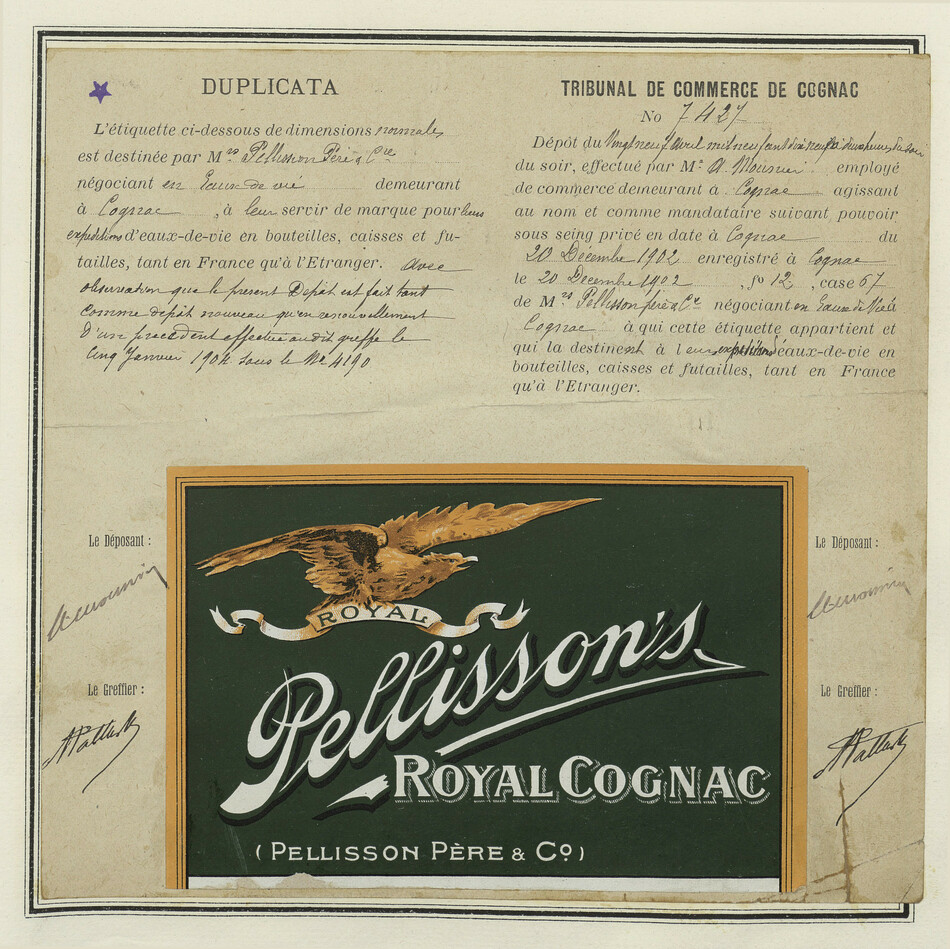 DUPLICATA
L'étiquette ci-dessous de dimensions normales
est destinée par Mrs Pellisson Père & Cie
négociant en Eaux de vie demeurant
à Cognac, à leur servir de marque pour leurs
expéditions d'eaux-de-vie en bouteilles, caisses et fu-
tailles, tant en France qu'à l'Etranger. Avec
observation que le présent Dépôt est fait tant
comme dépôt nouveau qu'en renouvellement
d'un précédent effectué au dit greffe le
Cinq Janvier 1904 sous le No 4190
TRIBUNAL DE COMMERCE DE COGNAC
No 7427
Dépôt du Vingt neuf Avril mil neuf cent
du soir, effectué par Mr A. Mounier employé
de commerce demeurant à Cognac agissant
au nom et comme mandataire suivant pouvoir
sous seing privé en date à Cognac du
20 Décembre 1902 enregistré à Cognac
le 20 Décembre 1902, fo 12, case 67
de Mrs Pellisson père & Cie négociant en Eaux de Vie à
Cognac à qui cette étiquette appartient et
qui la destinent à leurs expéditions d'eaux-de-vie en
bouteilles, caisses et futailles, tant en France
qu'à l'Etranger.
Le Déposant :
Le Déposant :
Le Greffier :
Le Greffier :
ROYAL
Pellisson's
ROYAL COGNAC
(PELLISSON PÈRE & Co)